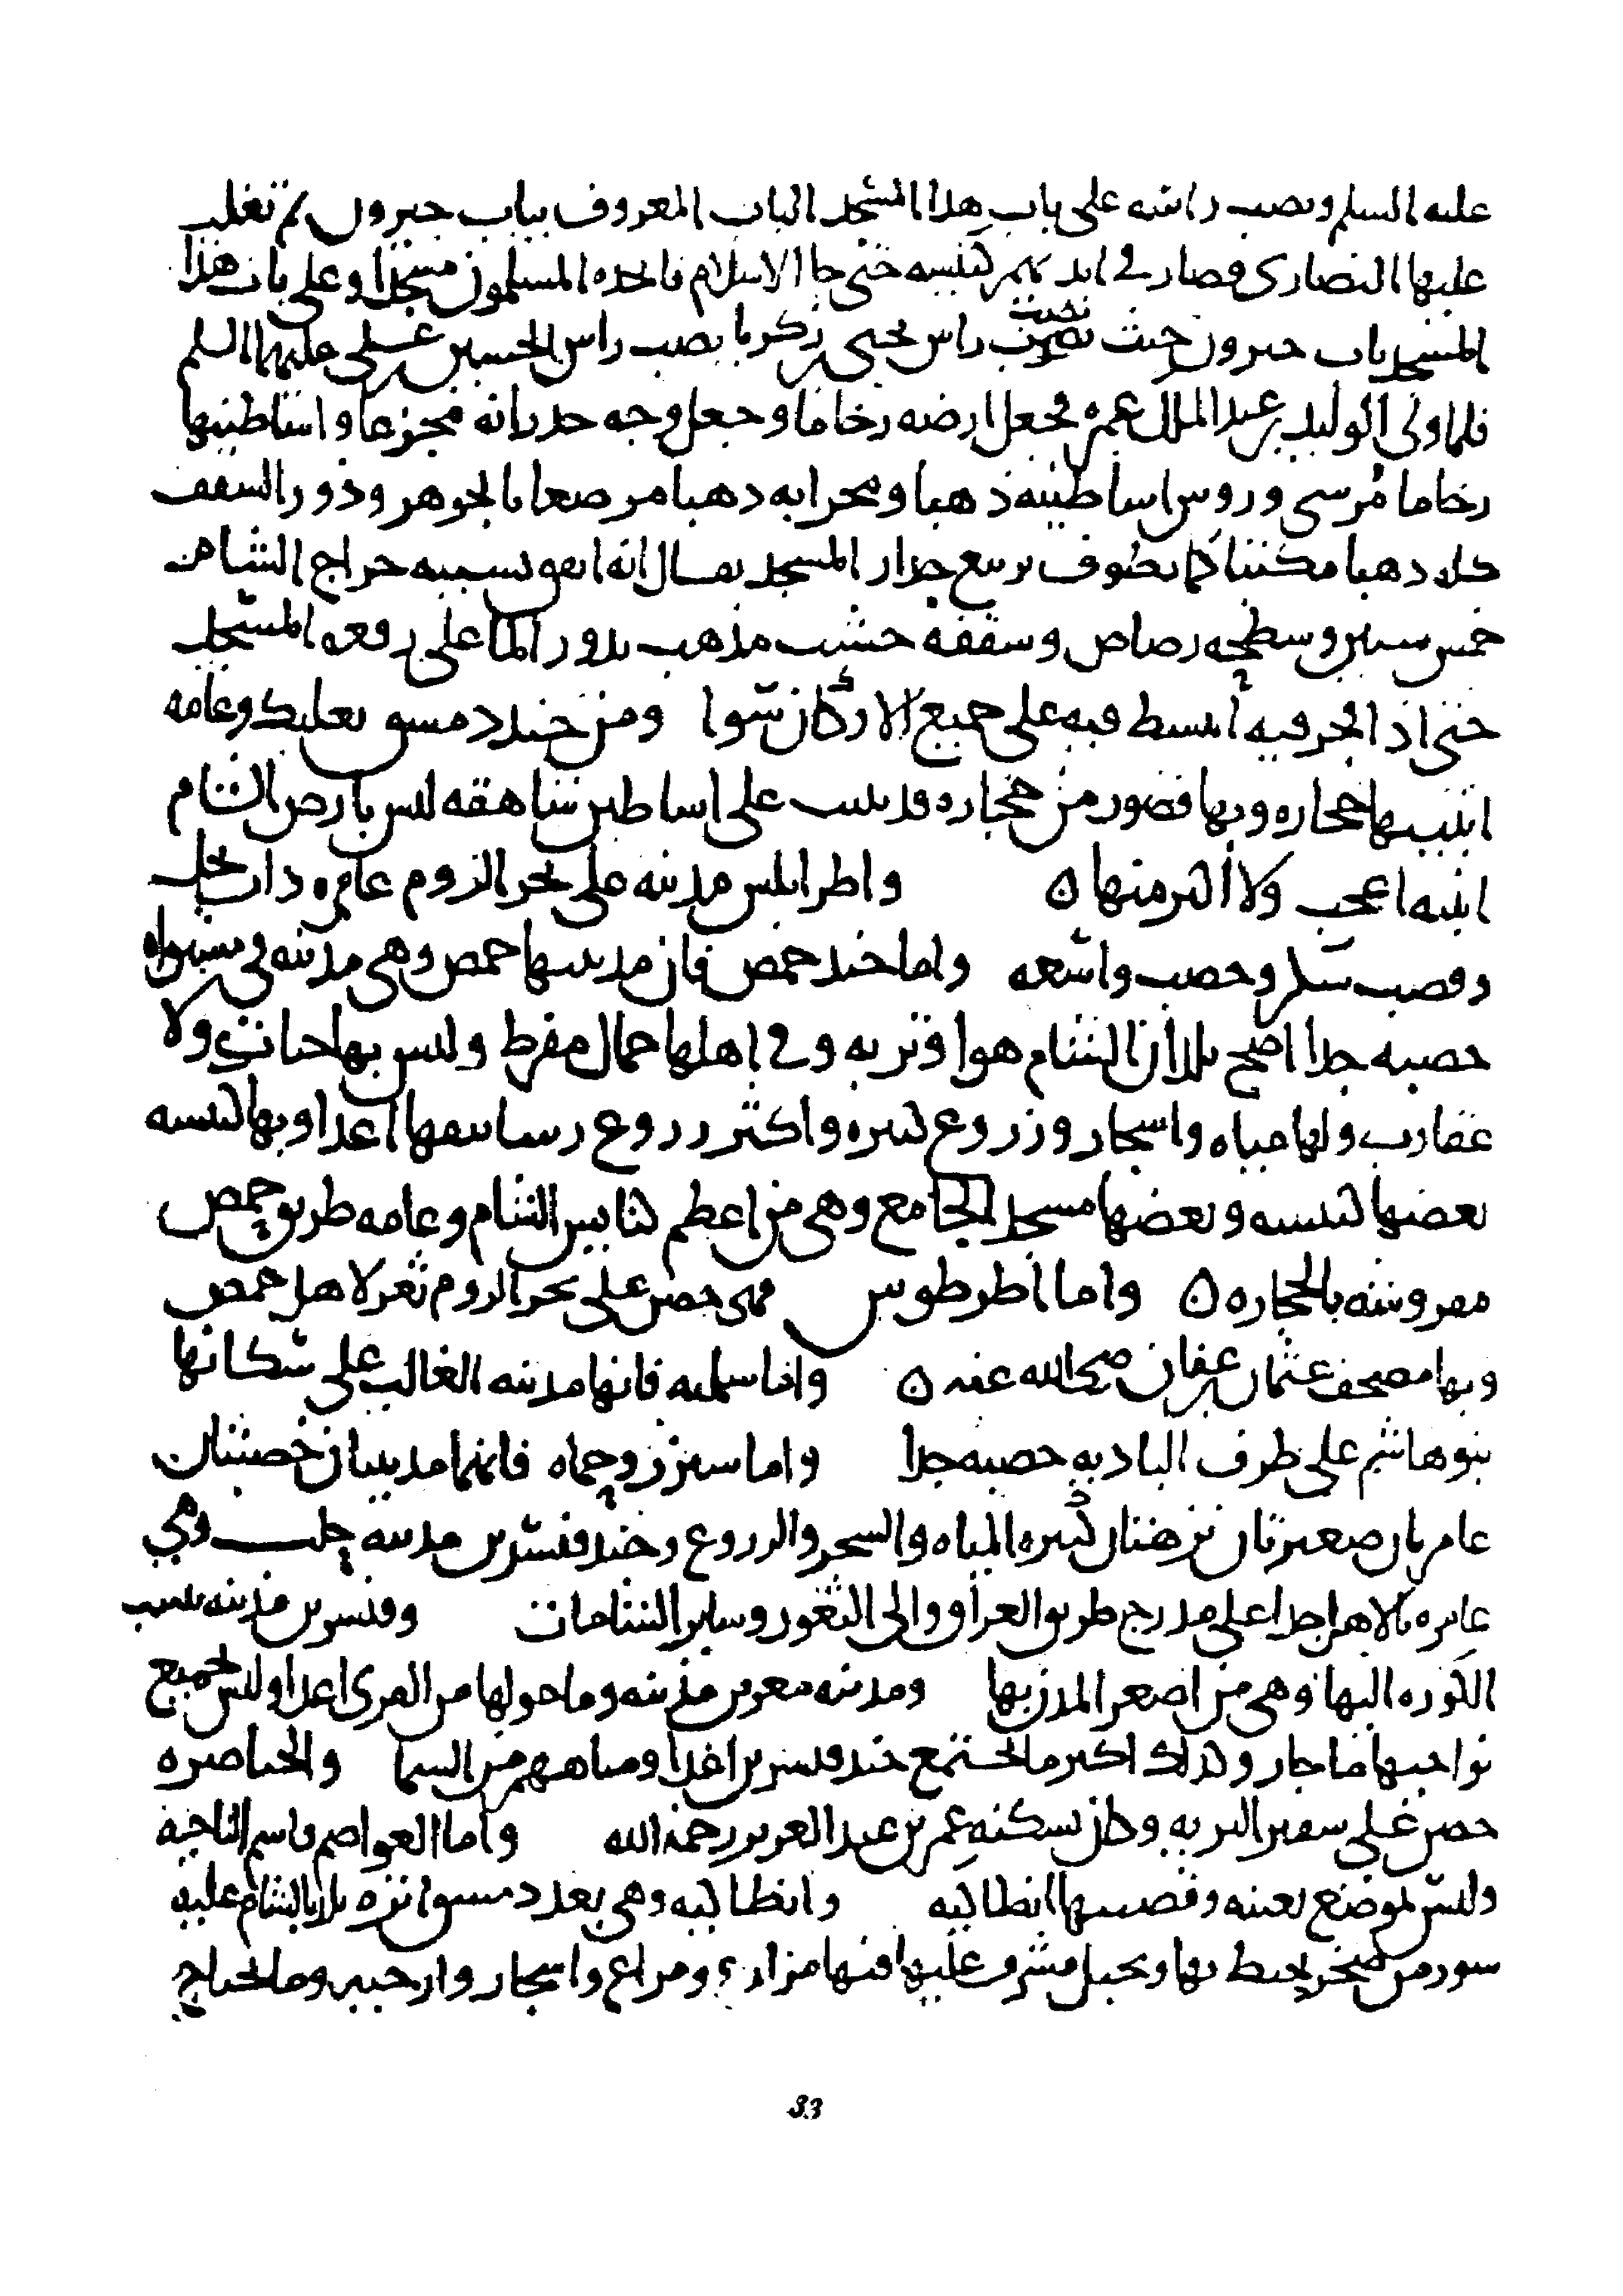 عليه السلم ونصب راسه على باب هذا المسجد الباب المعروف بباب جيرون ثم تغلب
عليها النصارى فصار في ايديهم كنيسه حتى جا الاسلام فاتخذه المسلمون مسجدا وعلى باب هذا
المسجد باب جيرون حيث نصب راس يحيى بن زكريا نصب راس الحسين بن على عليهما السلم
فلما ولى الوليد بن عبد الملك عمره فجعل ارضه رخاما وجعل وجه جدرانه مجزعا واساطينها
رخاما مُوسى وروس اساطينه ذهبا ومحرابه ذهبا مرصعا بالجوهر ودور السقف
كله ذهبا مكتبا كما يطوف بربيع جدار المسجد يقال انه انفق بسببه خراج الشام
خمس سنين وسطحه رصاص وسقفه خشب مذهب يدور الما على رقعه المسجد
حتى اذا فجر فيه انبسط فيه على جميع الاركان سوا ومن جند دمشق بعلبك وعامه
ابنيتها حجاره وبها قصور من حجاره قد بنيت على اساطين شاهقه ليس بارض الشام
ابنيه اعجب ولا اكبر منها ه واطرابلس مدينه على بحر الروم عامره ذات نخل
وقصب سكر وخصب واسعه واما جند حمص فان مدينتها حمص وهى مدينه في مستواه
خصبه جدا اصح بلدان الشام هوا وتربه وفي اهلها جمال مفرط وليس بها حيات ولا
عقارب ولها مياه واشجار وزروع كثيره واكثر زروع رساتيقها اعذا وبها كنيسه
بعضها كنيسه وبعضها مسجد الجامع وهى من اعظم كنايس الشام وعامه طريق حمص
مفروشه بالحجاره ه واما انطرطوس فهى حصن على بحر الروم ثغر لاهل حمص
وبها مصحف عثمان بن عفان رضى الله عنه ه واما سلميه فانها مدينه الغالب على سكانها
بنو هاشم على طرف الباديه خصبه جدا واما شيزر وحماه فانهما مدينتان خصبتان
عامرتان صغيرتان نزهتان كثيره المياه والشجر والزروع وجند قنسرين مدينه حلب وهى
عامره بالاهل جدا على مدرج طريق العراق والى الثغور وساير الشامات وقنسرين مدينه تنسب
الكوره اليها وهى من اصغر المدن بها ومدينه معرين مدينه وما حولها من القرى اعذا وليس بجميع
نواحيها ما جار وكذلك اكثر ما بجميع جند قنسرين اعذا ومياههم من السما والخناصره
حصن على سفير البريه وكان يسكنه عمر بن عبد العزيز رحمه الله واما العواصم فاسم الناحيه
وليس لموضع بعينه وقصبتها انطاكيه وانطاكيه وهى بعد دمشق انزه بلد بالشام عليه
سور من صخر يحيط بها وبجبل مشرف عليها فيها مزارع ومراع واشجار وارحيه وما يحتاج
33